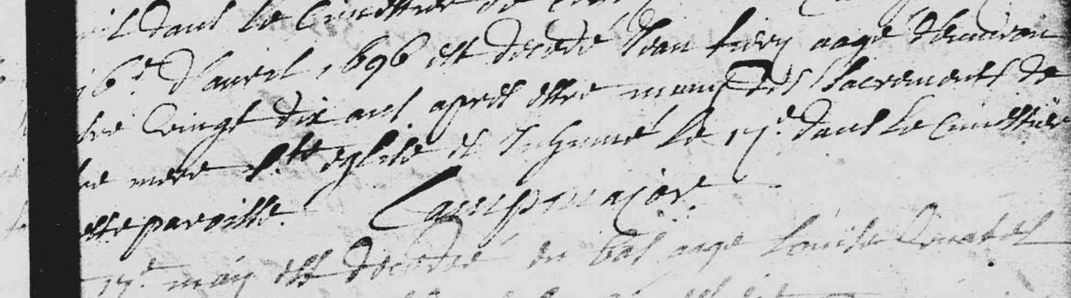 dans le cimettiere de
16e d'avril 1696 est decedé Jean fiery aagé d'environ
vingt dix ans apres estre muny des sacrements de
mere ste eglise et inhumé le 17e dans le cimettiere
cette paroisse. Campmajor.
17e may est decedé en bas aage Louise